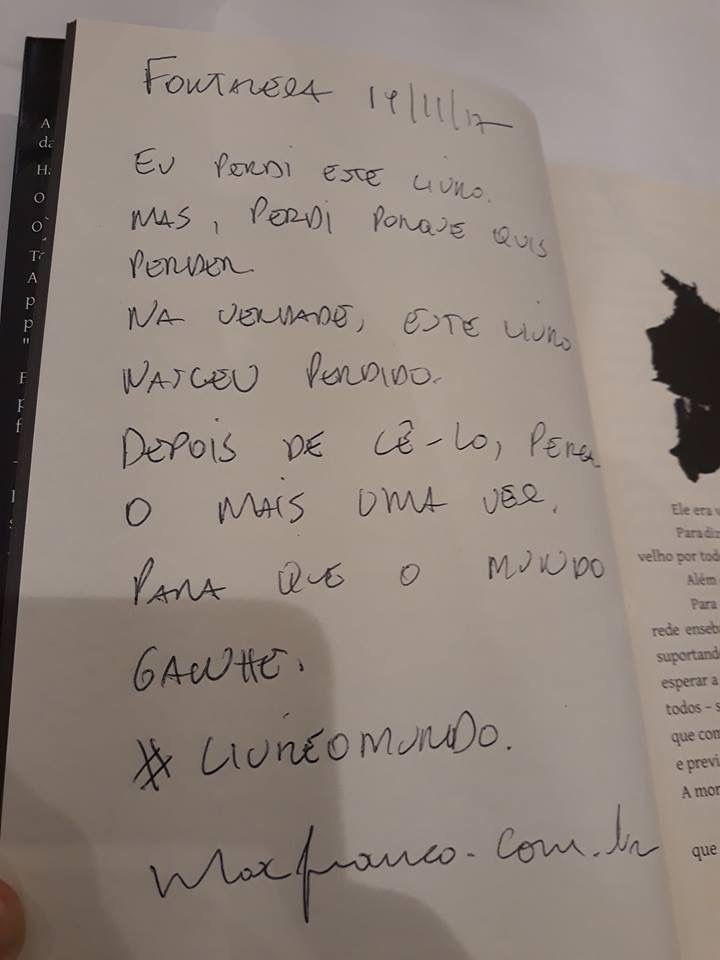 FORTALEZA 14/11/17
EU PERDI ESTE LIVRO.
MAS, PERDI PORQUE QUIS
PERDER.
NA VERDADE, ESTE LIVRO
NASCEU PERDIDO.
DEPOIS DE LÊ-LO, PERCA
O MAIS UMA VEZ,
PARA QUE O MUNDO
GANHE.
#LIVREOMUNDO.
maxfranco.com.br
A
da
H
O
O
T
A
p
p
"
F
p
f
Ele era v
Para diz
velho por tod
Além
Para
rede enseb
suportand
esperar a
todos – s
que com
e previ
A mor
que